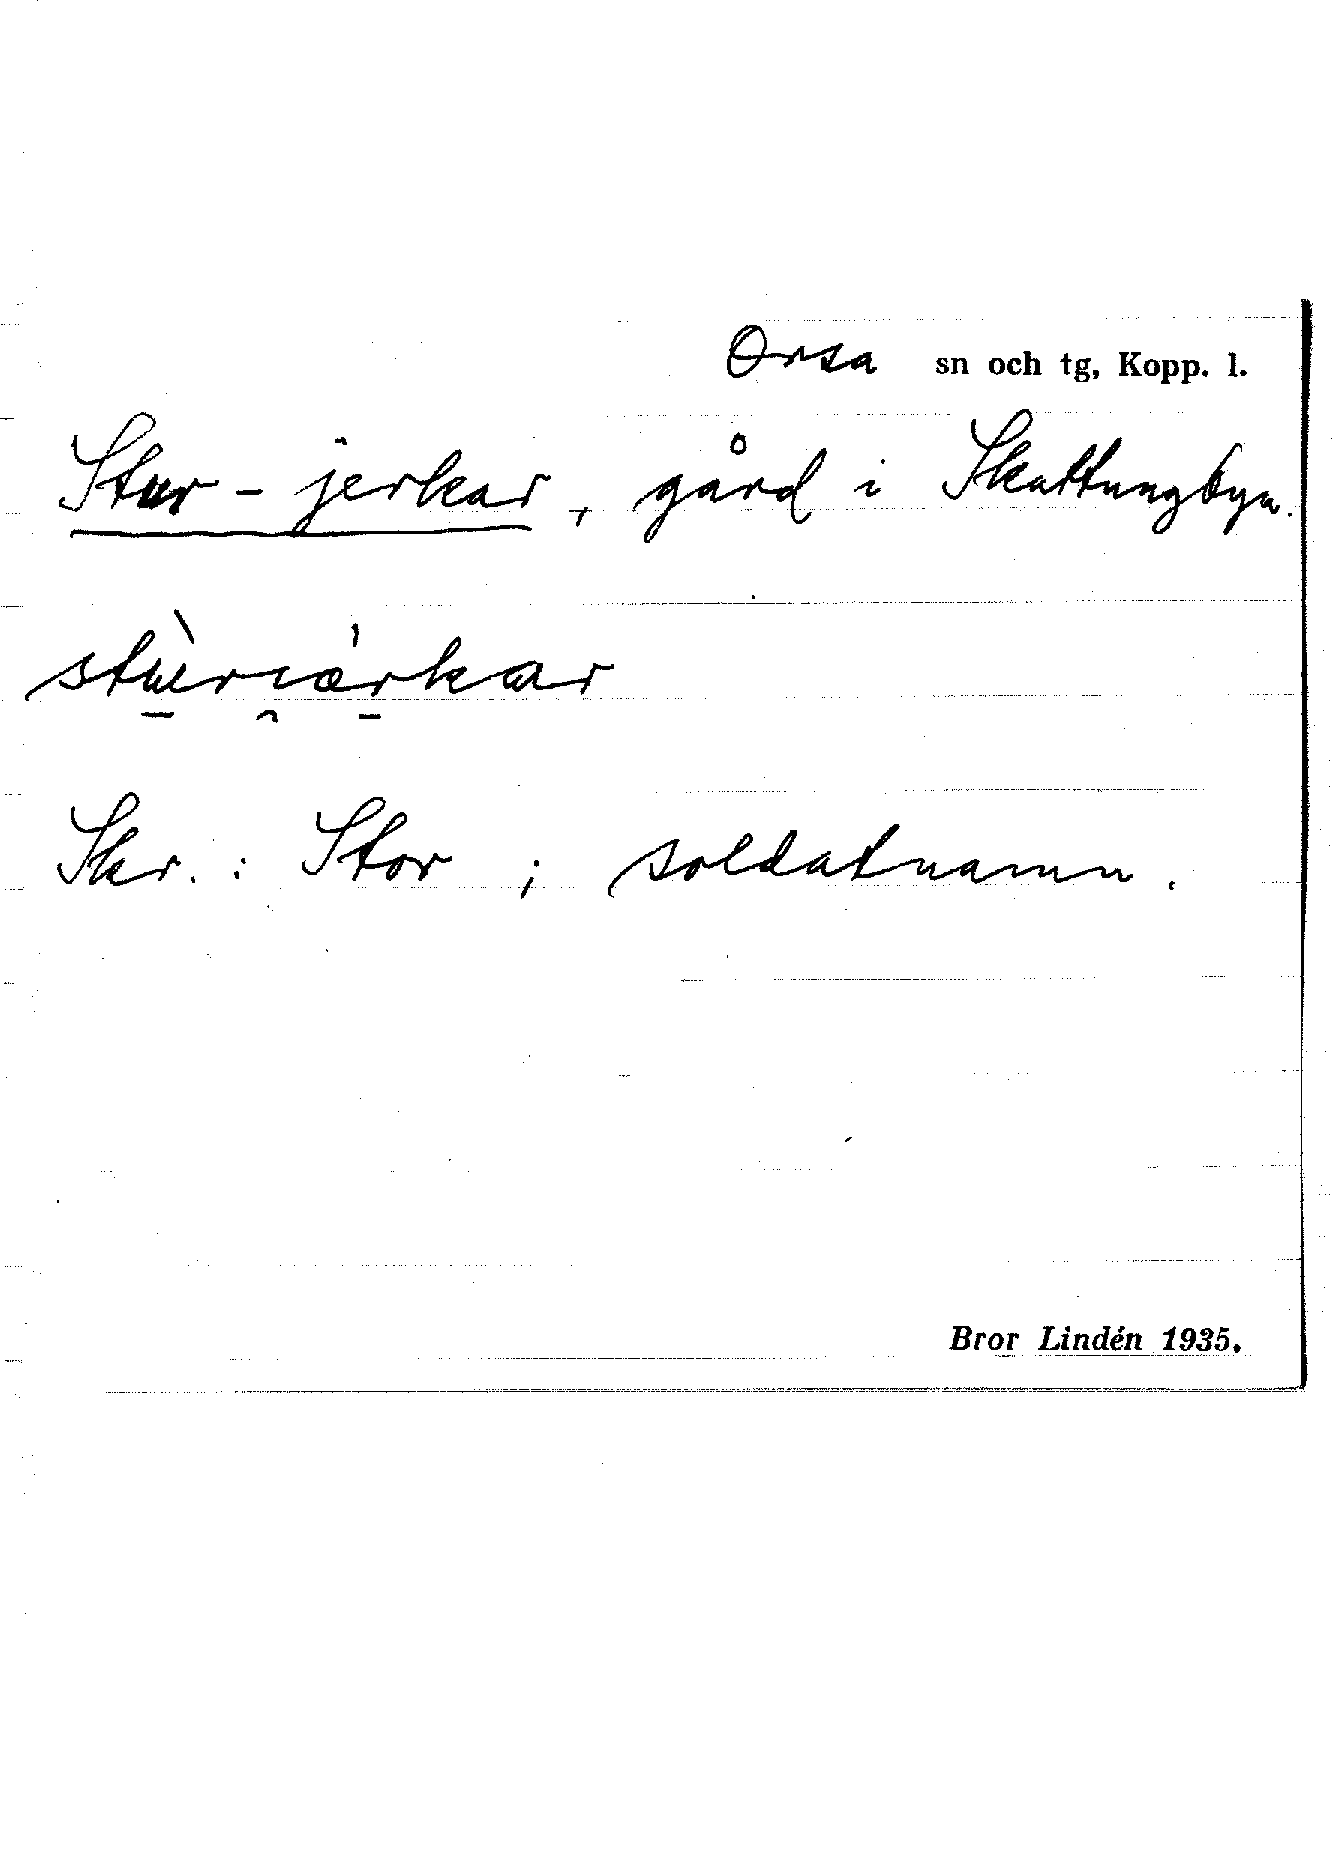 Orsa sn och tg, Kopp. l.
Stur-jerkar, gård i Skattungbyn.
stu̠̇̀ri̯ǽ̠rkar
Skr.: Stor; soldatnamn.
Bror Lindén 1935.